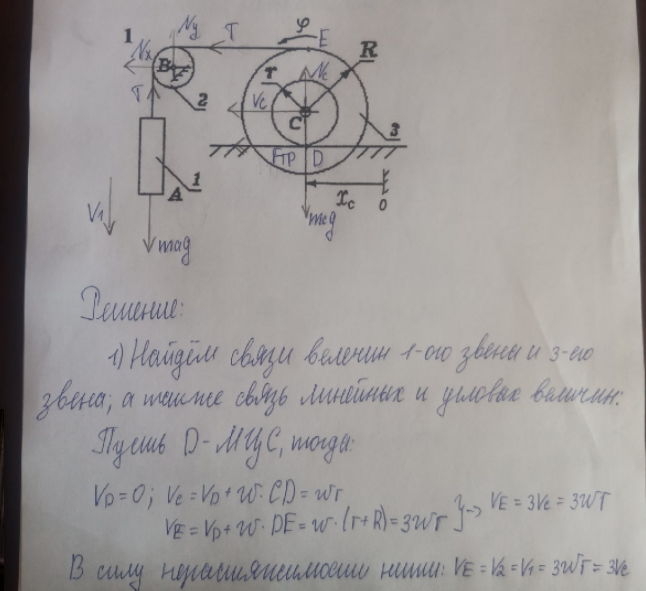 1
Ny
T
φ
E
Nx
B
R
T
r
Nc
Vc
C
2
3
Fтр
D
1
A
xc
0
V1
mcg
mAg
Решение:
1) Найдём связи величин 1-ого звена и 3-его
звена, а также связь линейных и угловых величин:
Пусть D - МЦС, тогда:
VD = 0; Vc = VD + ω · CD = ωr
VE = VD + ω · DE = ω · (r + R) = 3ωr } → VE = 3Vc = 3ωr
В силу нерастяжимости нити: VE = V2 = V1 = 3ωr = 3Vc